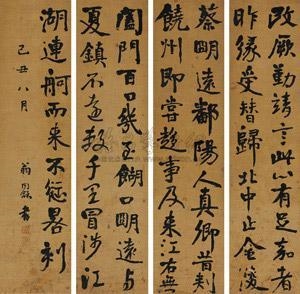 改厥勤有足嘉者
昨緣受替歸北中止金陵
蔡明遠鄱陽人真卿昔刺
饒州即嘗趨事及來江右無
闔門百口幾至餬口明遠與
夏鎮不遠數千里冒涉江
湖連舸而來不愆晷刻
己丑八月
翁同龢書